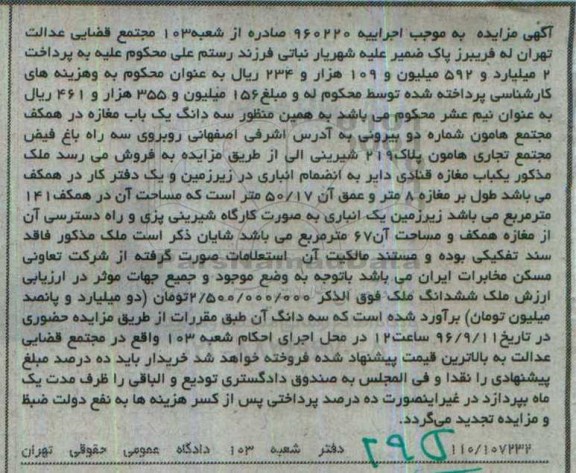 آگهی مزایده به موجب اجراییه ۹۶۰۲۲۰ صادره از شعبه۱۰۳ مجتمع قضایی عدالت
تهران له فریبرز پاک ضمیر علیه شهریار نباتی فرزند رستم علی محکوم علیه به پرداخت
۲ میلیارد و ۵۹۲ میلیون و ۱۰۹ هزار و ۲۳۴ ریال به عنوان محکوم به وهزینه های
کارشناسی پرداخته شده توسط محکوم له و مبلغ۱۵۶ میلیون و ۳۵۵ هزار و ۴۶۱ ریال
به عنوان نیم عشر محکوم می باشد به همین منظور سه دانگ یک باب مغازه در همکف
مجتمع هامون شماره دو بیرونی به آدرس اشرفی اصفهانی روبروی سه راه باغ فیض
مجتمع تجاری هامون پلاک۲۱۹ شیرینی الی از طریق مزایده به فروش می رسد ملک
مذکور یکباب مغازه قنادی دایر به انضمام انباری در زیرزمین و یک دفتر کار در همکف
می باشد طول بر مغازه ۸ متر و عمق آن ۵۰/۱۷ متر است که مساحت آن در همکف۱۴۱
مترمربع می باشد زیرزمین یک انباری به صورت کارگاه شیرینی پزی و راه دسترسی آن
از مغازه همکف و مساحت آن۶۷ مترمربع می باشد شایان ذکر است ملک مذکور فاقد
سند تفکیکی بوده و مستند مالکیت آن استعلامات صورت گرفته از شرکت تعاونی
مسکن مخابرات ایران می باشد باتوجه به وضع موجود و جمیع جهات موثر در ارزیابی
ارزش ملک ششدانگ ملک فوق الذکر ۲/۵۰۰/۰۰۰/۰۰۰تومان (دو میلیارد و پانصد
میلیون تومان) برآورد شده است که سه دانگ آن طبق مقررات از طریق مزایده حضوری
در تاریخ۹۶/۹/۱۱ ساعت۱۲ در محل اجرای احکام شعبه ۱۰۳ واقع در مجتمع قضایی
عدالت به بالاترین قیمت پیشنهاد شده فروخته خواهد شد خریدار باید ده درصد مبلغ
پیشنهادی را نقدا و فی المجلس به صندوق دادگستری تودیع و الباقی را ظرف مدت یک
ماه بپردازد در غیراینصورت ده درصد پرداختی پس از کسر هزینه ها به نفع دولت ضبظ
و مزایده تجدید می‌گردد.
۱۱۰/۱۰۷۲۳۲ دفتر شعبه ۱۰۳ دادگاه عمومی حقوقی تهران